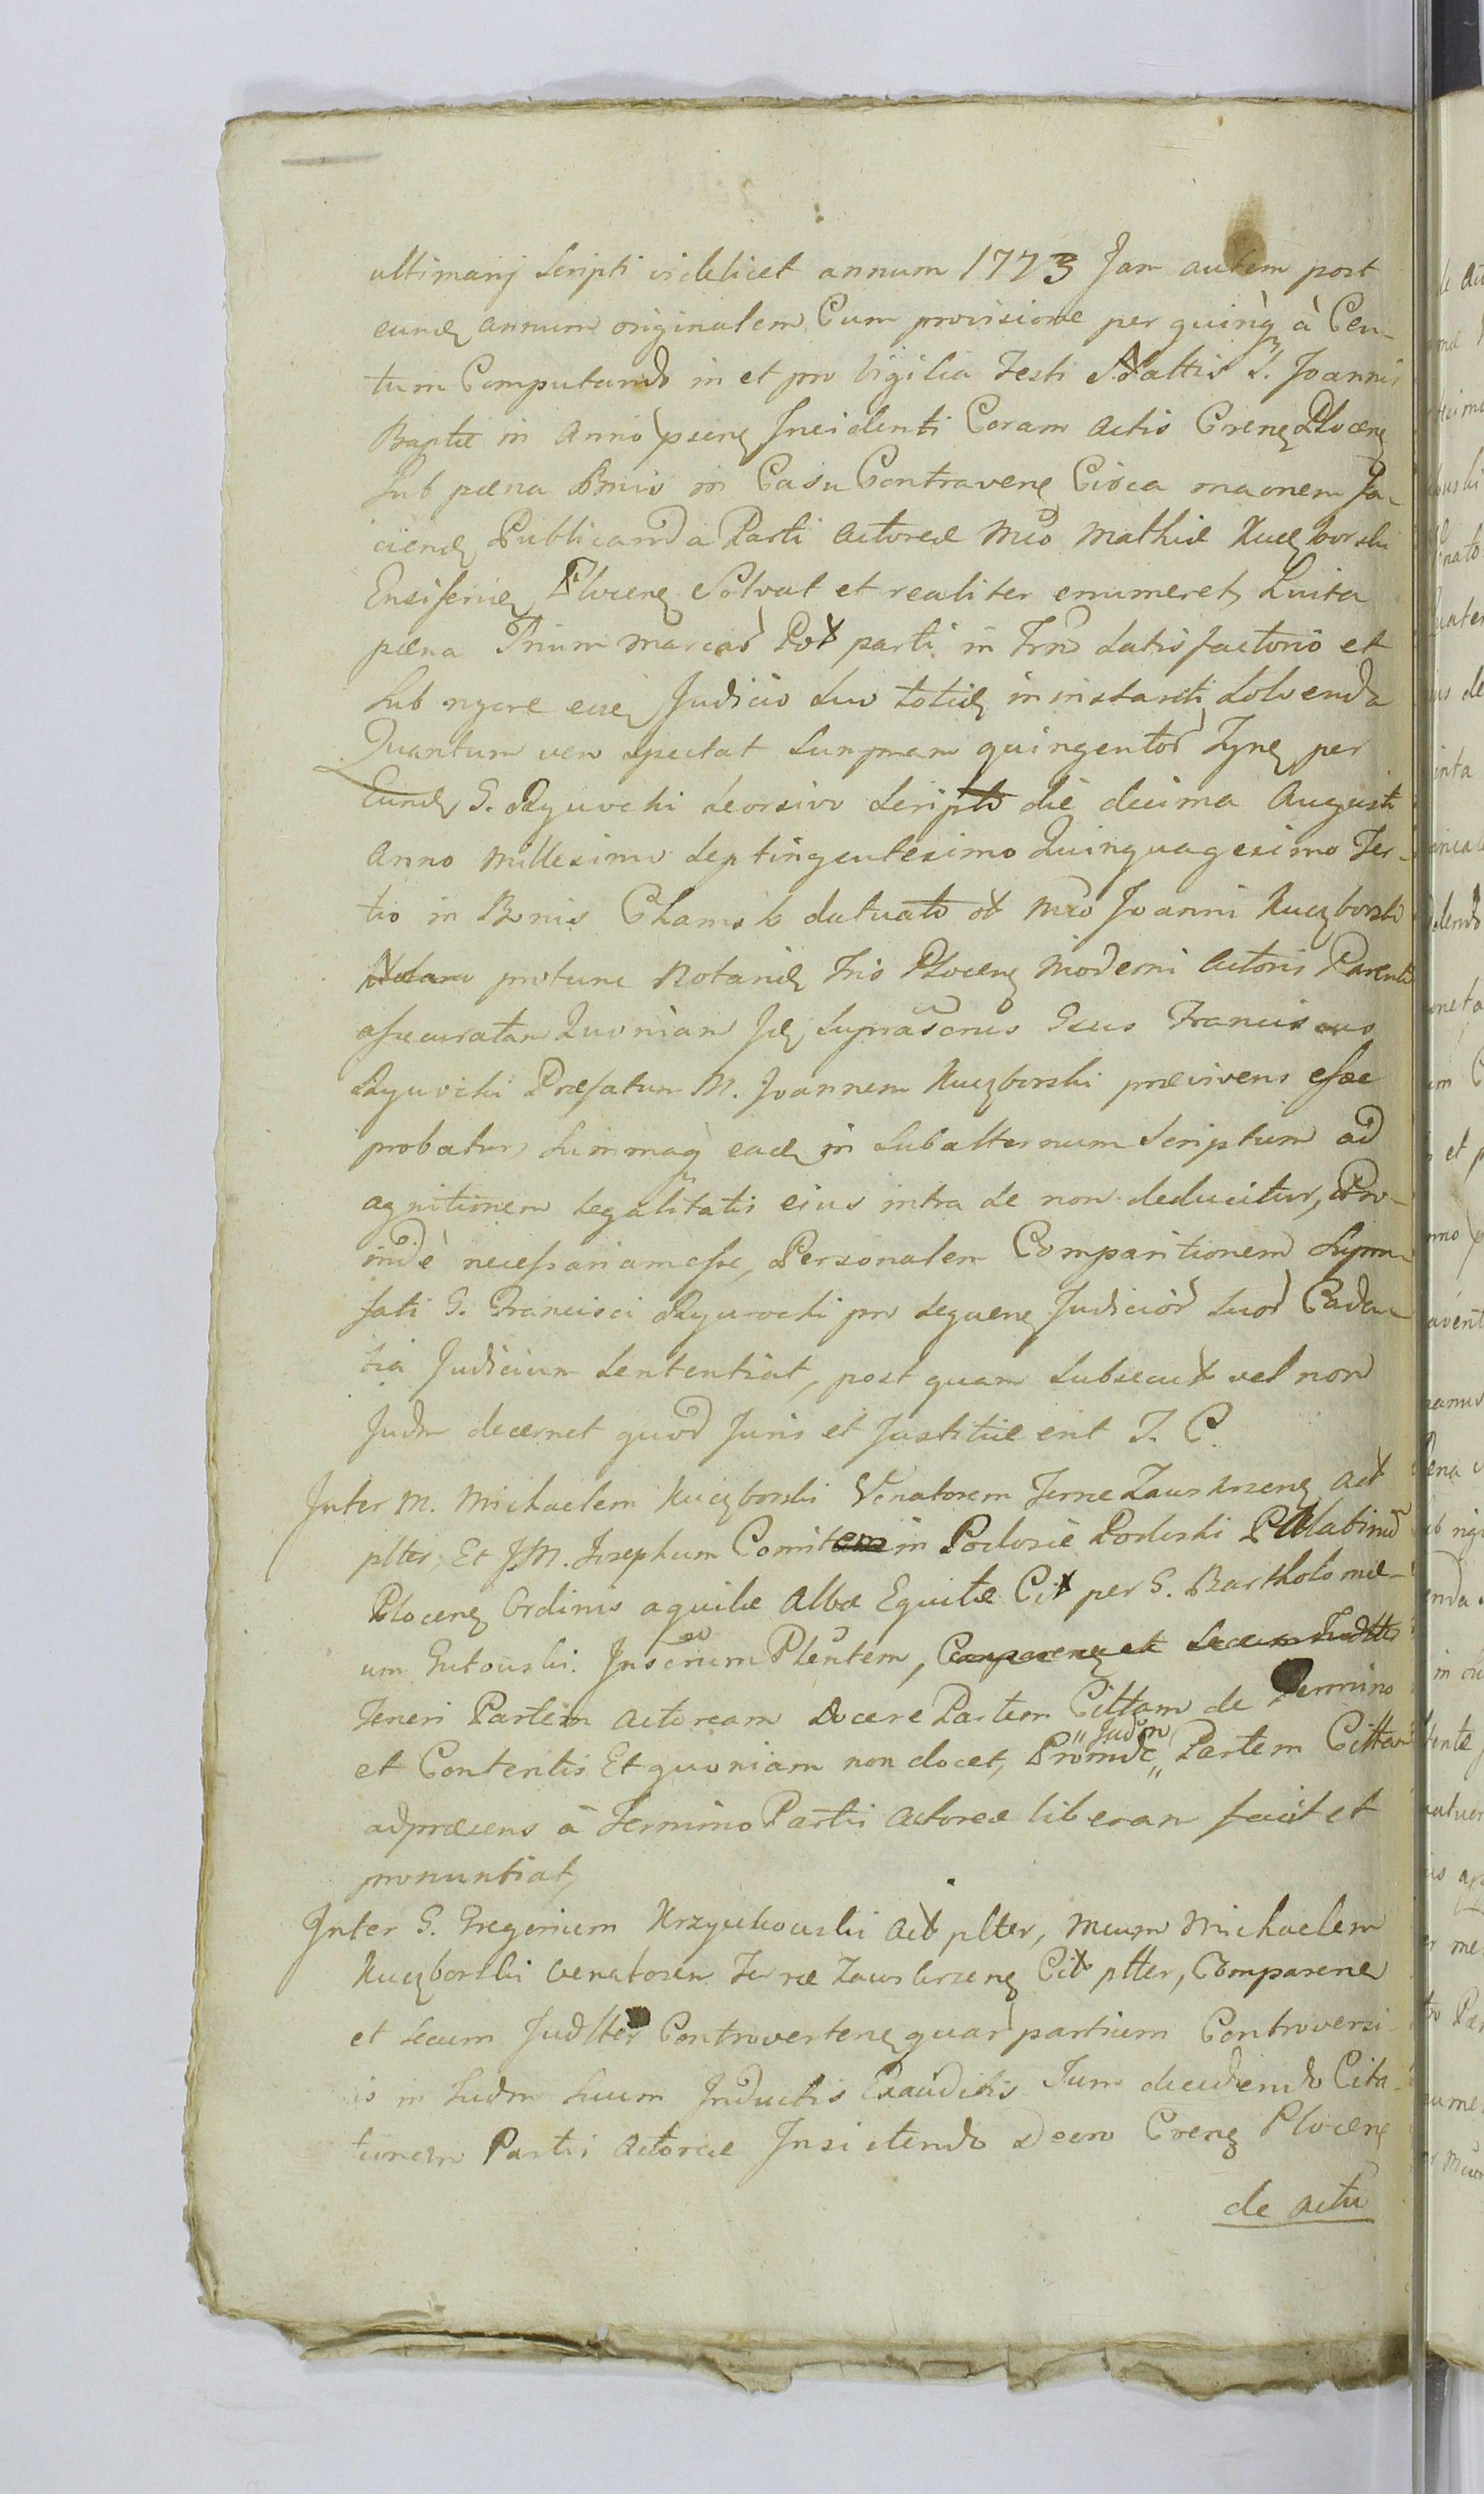 ultimarij Scripti videlicet annum 1773 Jam autem post
eund annum originalem Cum provisione per quinq à Cen-
tum Computando in et pro Vigilia Festi Naltis S. Joannis
Baptae in Anno psenz Incidenti Coram Actis Crenz Plocenz
Sub paena Bnnis in Casu Contravenz Circa maonem Fa-
ciend Publicanda Parti Actoreae Mco Mathiae Kuczborski
Ensiferid Plocenz Solvat et realiter enumeret, Luita
paena Trium Marcar Pol parti in Trno Satisfactorio et
Sub rygore eiusd Judicio Suo totid in instanti Solvenda
Quantum vero spectat Summam quingentor Tynf per
Eund G. Zyuvchi Seorsivo Scripto die decima Augusti
Anno Millesimo Septingentesimo Quinquagesimo Ter-
tio in Bonis Chamsk datuato ol Mco Joanni Kuczborski
protunc Notarid Tris Plocenz Moderni Actoris Parenti
assecuratam Quoniam Id Suprascrus Gsus Franciscus
Praefatum M. Joannem Kuczborski praevivens esse
probatur Summaq ead in Subalternum Scriptum ad
agnitionem legalitatis eius intra se non deducitur, Pro-
indè necessariam esse, Personalem Comparitionem Supra-
fati G. Francisci pro Sequenz Judicior Suor Caden-
tia Judicium Sententiat, post quam Subsecut vel non
Judm decernet quod Juris et Justitiae erit I. C.
Inter M. Michaelem Kuczborski Venatorem Terrae Zawskrzenz Act
plter, Et JM. Josephum Comitem in Podosie Podoski Palatinu
Plocenz Ordinis aquilae Albae Equitae Cit per G. Bartholomae-
um Gutouski. Inscrum Plentem, Comparenz et Secum Judltr
Teneri Partem Actoream Docere Partem Cittam de Termino
et Contentis Et quoniam non docet, Proinde "Judm" Partem Cittam
adpraesens à Termino Partis Actoreae liberam facit et
pronuntiat,
Inter G. Gregorium Krzyckouski Act plter, Mcum Michaelem
Kuczborski Venatorem Terrae Zauskrzenz Cit plter, Comparenz
et Secum Judlter Controvertenz quar partium Controversi-
is in Judm Suum Inductis Exauditis Tum decidendo Cita-
tionem Partis Actoreae Insistendo Decro Crenz Plocenz
de Actu